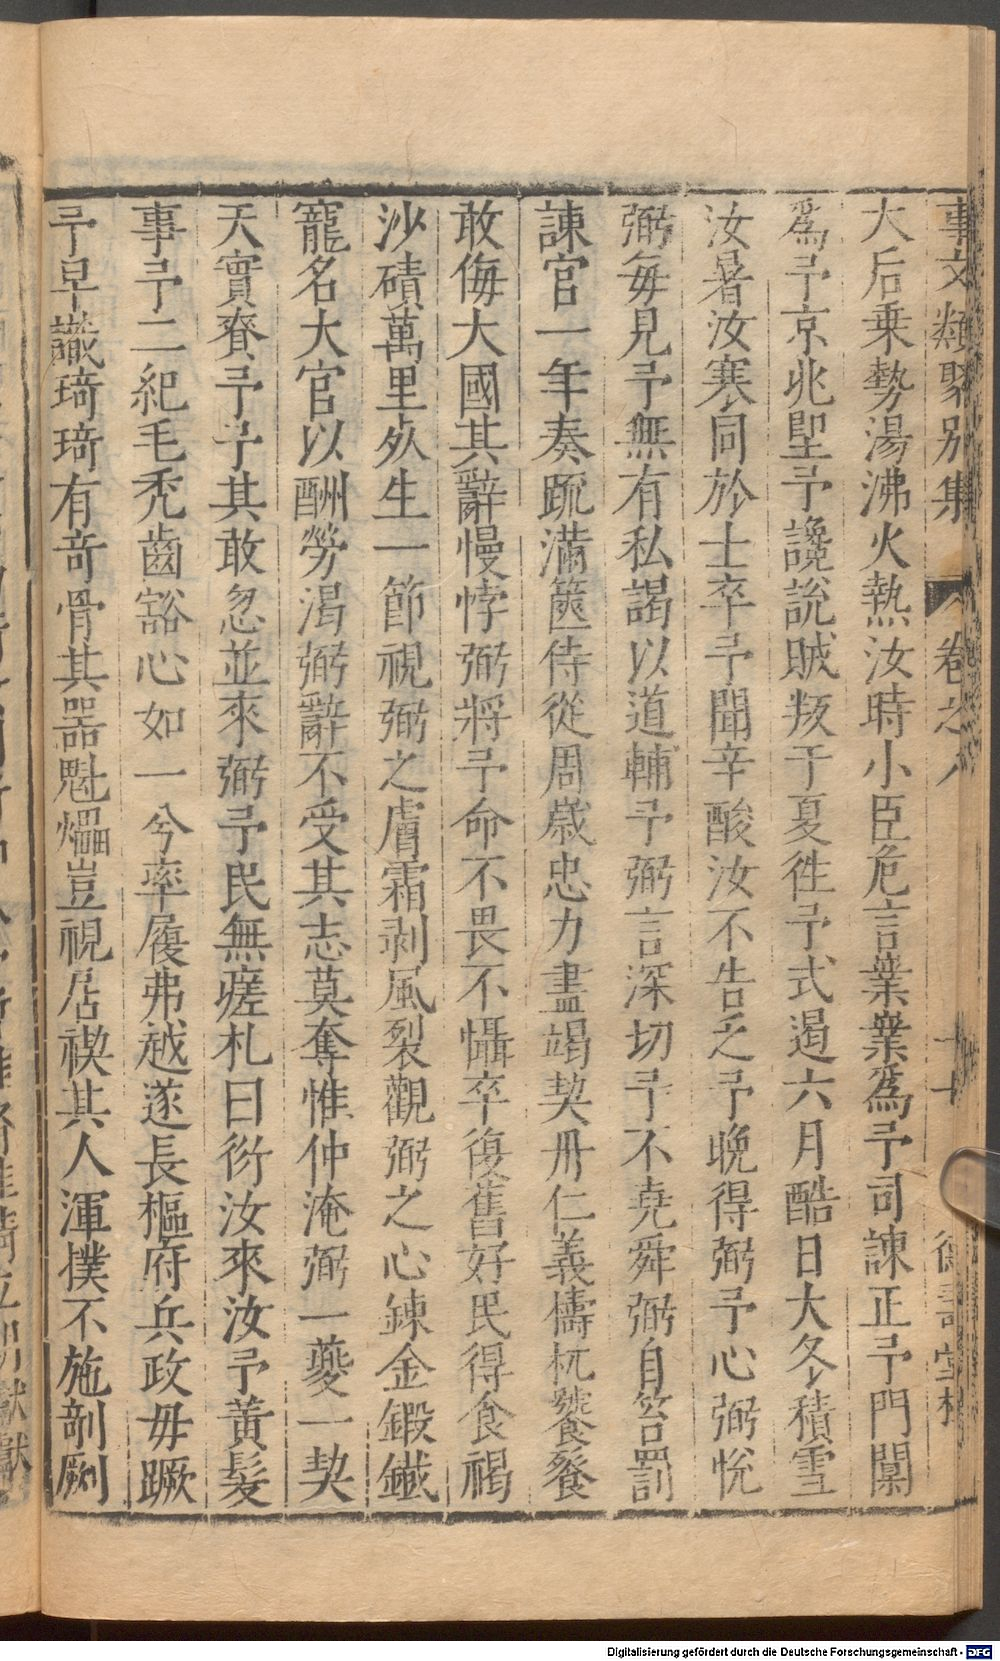 事文類聚別集 卷之八
大后乗勢湯沸火熱汝時小臣危言業業爲予司諫正予門闑
爲予京兆堲予讒說賊叛于夏徃予式遏六月酷日大冬積雪
汝暑汝寒同於士卒予聞辛酸汝不告乏予晚得弼予心弼悅
弼每見予無有私謁以道輔予弼言深切予不堯舜弼自笞罰
諫官一年奏䟽滿篋侍從周歲忠力盡竭契丹仁義檮杌饕餮
敢侮大國其辭慢悖弼將予命不畏不懾卒復舊好民得食褐
沙磧萬里死生一節視弼之膚霜剥風裂觀弼之心鍊金鍛鐵
寵名大官以酬勞渴弼辭不受其志莫奪惟仲淹弼一夔一契
天實賚予予其敢忽並來弼予民無瘥札曰衍汝來汝予黃髮
事予二紀毛秃齒豁心如一兮率履弗越遂長樞府兵政毋蹶
予早識琦琦有竒骨其器魁櫑豈視扂楔其人渾撲不施剖劂
Digitalisierung gefördert durch die Deutsche Forschungsgemeinschaft - DFG